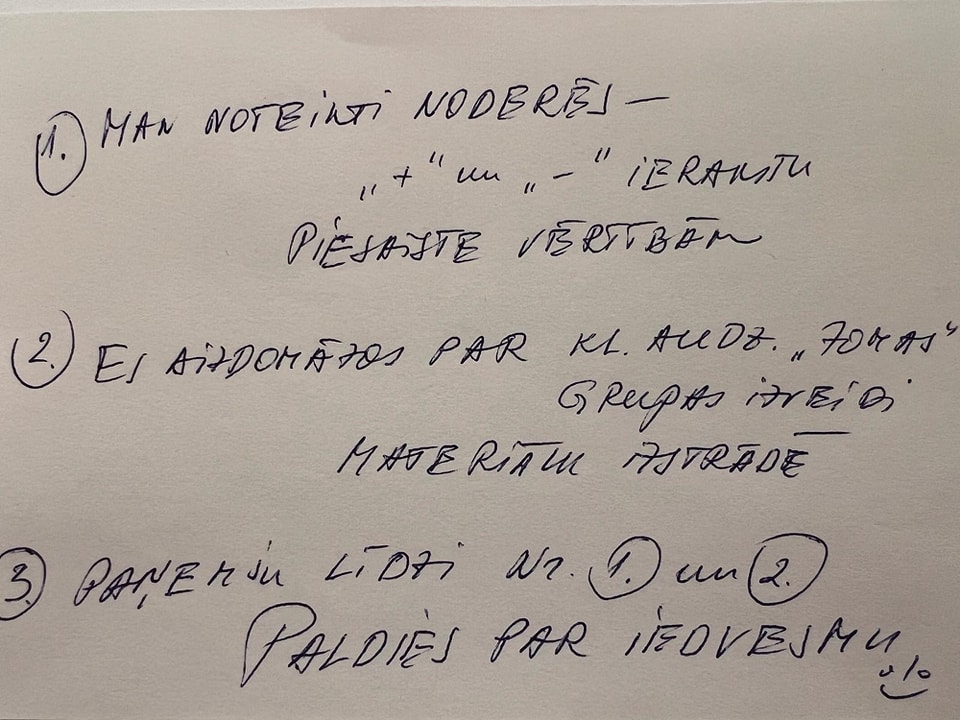 1. MAN NOTEIKTI NODERĒS –
„+“ un „–“ IERAKSTU
PIESAISTE VĒRTĪBĀM
2. ES AIZDOMĀJOS PAR KL. AUDZ. „JOMAS“
GRUPAS IZVEIDI
MATERIĀLU IZSTRĀDĒ
3. PAŅEMŠU LĪDZI Nr. 1. un 2.
PALDIES PAR IEDVESMU